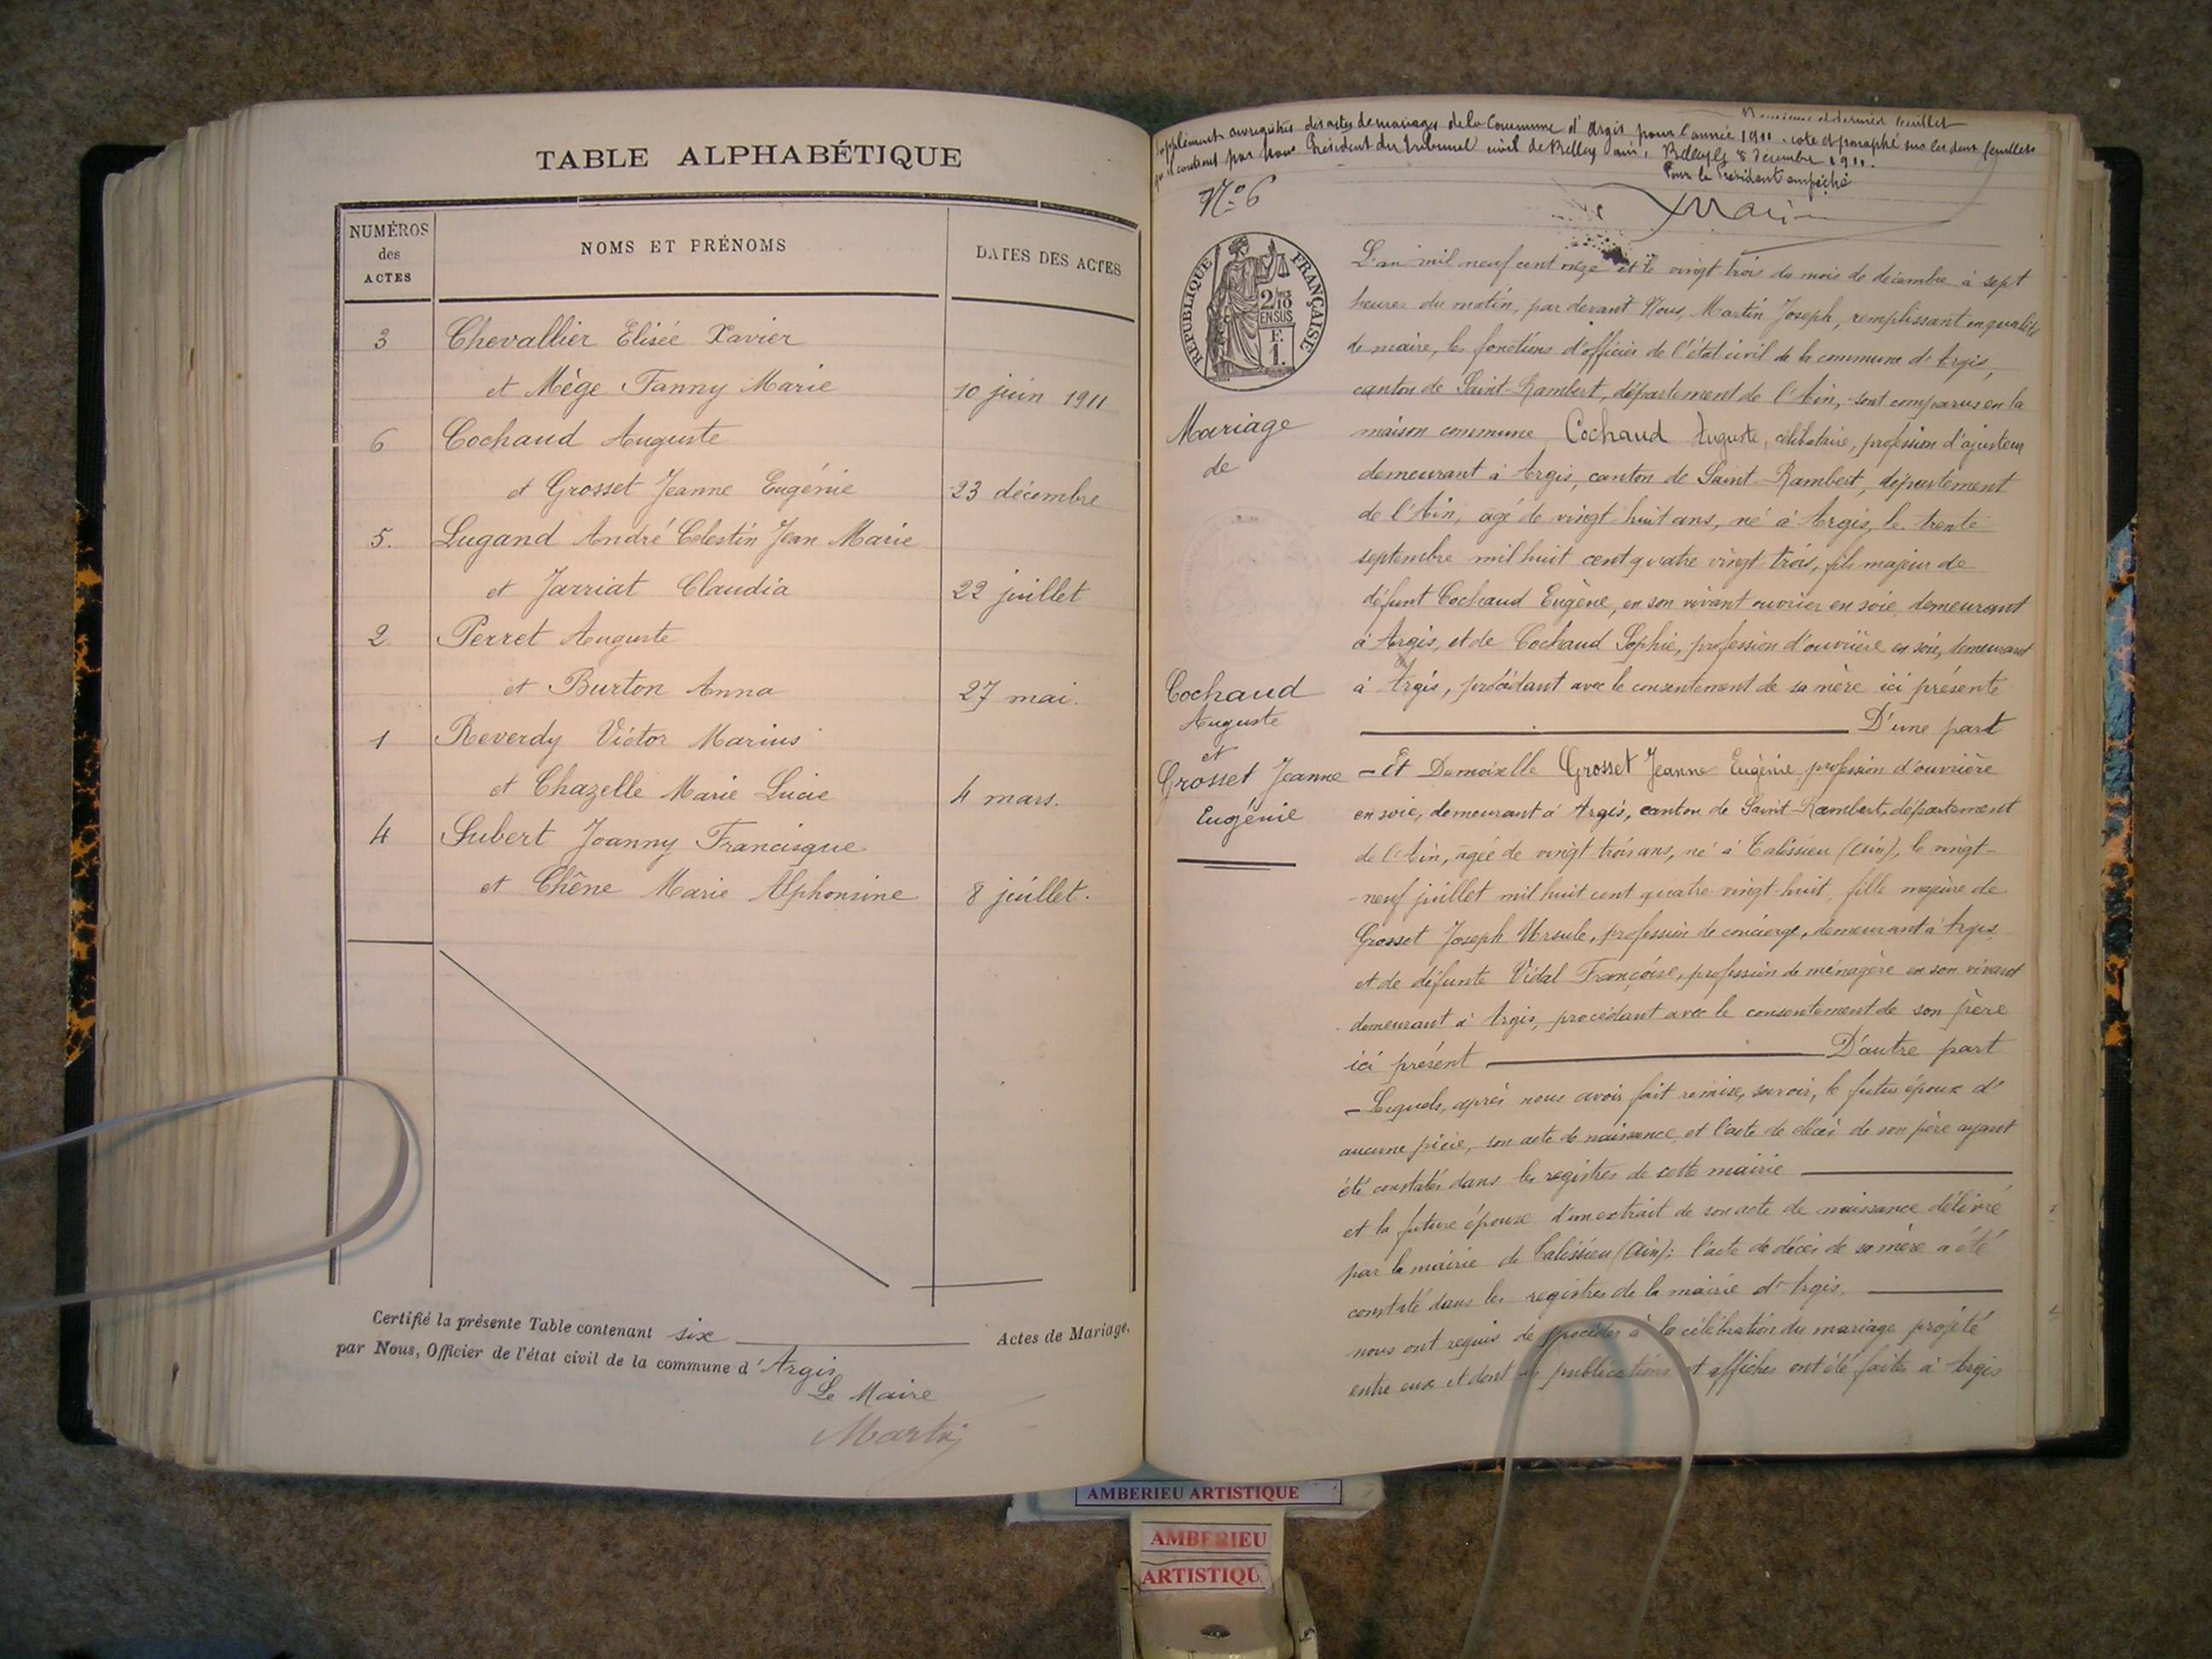 TABLE ALPHABÉTIQUE
NUMÉROS des ACTES
NOMS ET PRÉNOMS
DATES DES ACTES
3 Chevallier Elisée Xavier
et Mège Fanny Marie 10 juin 1911
6 Cochaud Auguste
et Grosset Jeanne Eugénie 23 décembre
5. Lugand André Célestin Jean Marie
et Jarriat Claudia 22 juillet
2 Perret Auguste
et Burton Anna 27 mai.
1 Reverdy Victor Marius
et Chazelle Marie Lucie 4 mars.
4 Subert Joanny Francisque
et Chêne Marie Alphonsine 8 juillet.
Certifié la présente Table contenant six Actes de Mariage,
par Nous, Officier de l'état civil de la commune d'Argis
Le Maire
Martin
et dernier feuillet
Supplément aux registres des actes de mariages de la Commune d'Argis pour l'année 1911. coté et paraphé sur les deux feuillets
qu'il contient par Nous Président du tribunal civil de Belley Ain, Belley le 8 décembre 1911.
Pour le Président empêché
N° 6
RÉPUBLIQUE FRANÇAISE
2/10
EN SUS
F.
1.
L'an mil neuf cent onze et le vingt trois du mois de décembre à sept
heures du matin, par devant Nous, Martin Joseph, remplissant en qualité
de maire, les fonctions d'officier de l'état civil de la commune de Argis,
canton de Saint-Rambert, département de l'Ain, sont comparus en la
Mariage
de
maison commune Cochaud Auguste, célibataire, profession d'ajusteur
demeurant à Argis, canton de Saint-Rambert, département
de l'Ain, âgé de vingt huit ans, né à Argis, le trente
septembre mil huit cent quatre vingt trois, fils majeur de
défunt Cochaud Eugène, en son vivant ouvrier en soie demeurant
à Argis, et de Cochaud Sophie, profession d'ouvrière en soie, demeurant
à Argis, procédant avec le consentement de sa mère ici présente
D'une part
Cochaud
Auguste
et
Grosset Jeanne
Eugénie
- Et Demoiselle Grosset Jeanne Eugénie profession d'ouvrière
en soie, demeurant à Argis, canton de Saint-Rambert, département
de l'Ain, âgée de vingt trois ans, né à Talissieu (Ain), le vingt-
neuf juillet mil huit cent quatre-vingt-huit, fille majeure de
Grosset Joseph Ursule, profession de concierge, demeurant à Argis
et de défunte Vidal Françoise, profession de ménagère en son vivant
demeurant à Argis, procédant avec le consentement de son père
ici présent D'autre part
- Lesquels, après nous avoir fait remise, savoir, le futur époux d'
aucune pièce, son acte de naissance et l'acte de décès de son père ayant
été constatés dans les registres de cette mairie
et la future épouse d'un extrait de son acte de naissance délivré
par la mairie de Talissieu (Ain); l'acte de décès de sa mère a été
constaté dans les registres de la mairie d'Argis.
nous ont requis de procéder à la célébration du mariage projeté
entre eux et dont les publications et affiches ont été faites à Argis
AMBERIEU ARTISTIQUE
AMBERIEU
ARTISTIQU